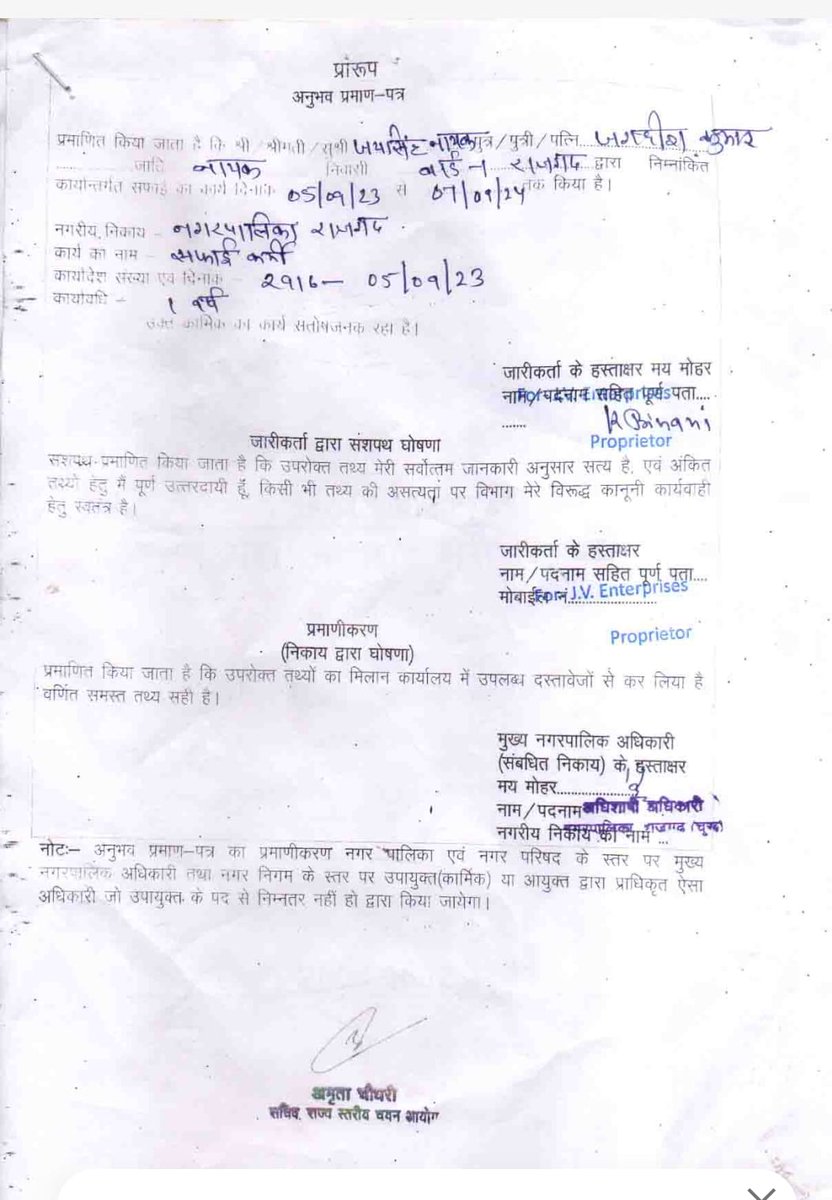 प्रांरूप
अनुभव प्रमाण–पत्र
प्रमाणित किया जाता है कि श्री/श्रीमती/सुश्री जयसिंह नायक पुत्र/पुत्री/पत्नि जगदीश कुमार
जाति नायक निवासी वार्ड न राजगढ द्वारा निम्नांकित
कार्यान्तर्गत सफाई का कार्य दिनांक 05/09/23 से 07/09/24 तक किया है।
नगरीय निकाय – नगरपालिका राजगढ
कार्य का नाम – सफाई कर्मी
कार्यादेश संख्या एवं दिनांक – 2916 – 05/09/23
कार्यावधि – 1 वर्ष
उक्त कार्मिक का कार्य संतोषजनक रहा है।
जारीकर्ता के हस्ताक्षर मय मोहर
नाम/पदनाम सहित पूर्ण पता....
.......
K Binani
Proprietor
जारीकर्ता द्वारा संशपथ घोषणा
सशपथ प्रमाणित किया जाता है कि उपरोक्त तथ्य मेरी सर्वोत्तम जानकारी अनुसार सत्य है, एवं अंकित
तथ्यो हेतु मैं पूर्ण उत्तरदायी हूँ, किसी भी तथ्य की असत्यता पर विभाग मेरे विरूद्ध कानूनी कार्यवाही
हेतु स्वतंत्र है।
जारीकर्ता के हस्ताक्षर
नाम/पदनाम सहित पूर्ण पता....
मोबाईल नं.
For J.V. Enterprises
Proprietor
प्रमाणीकरण
(निकाय द्वारा घोषणा)
प्रमाणित किया जाता है कि उपरोक्त तथ्यों का मिलान कार्यालय में उपलब्ध दस्तावेजों से कर लिया है
वर्णित समस्त तथ्य सही है।
मुख्य नगरपालिक अधिकारी
(संबधित निकाय) के हस्ताक्षर
मय मोहर....................
नाम/पदनाम अधिशाषी अधिकारी
नगरीय निकाय का नाम ...
नगरपालिका, राजगढ (चुरू)
नोटः– अनुभव प्रमाण–पत्र का प्रमाणीकरण नगर पालिका एवं नगर परिषद के स्तर पर मुख्य
नगरपालिक अधिकारी तथा नगर निगम के स्तर पर उपायुक्त(कार्मिक) या आयुक्त द्वारा प्राधिकृत ऐसा
अधिकारी जो उपायुक्त के पद से निम्नतर नहीं हो द्वारा किया जायेगा।
अमृता चौधरी
सचिव, राज्य स्तरीय चयन आयोग